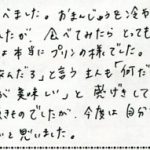 べました。おまんじゅうを冷や
たが、食べてみたらとっても
は本当にプリンの様でした。
なんだろ」と言うまんも「何だ
が美味しい」と繋げして
きものでしたが、今度は自分
と思いました。